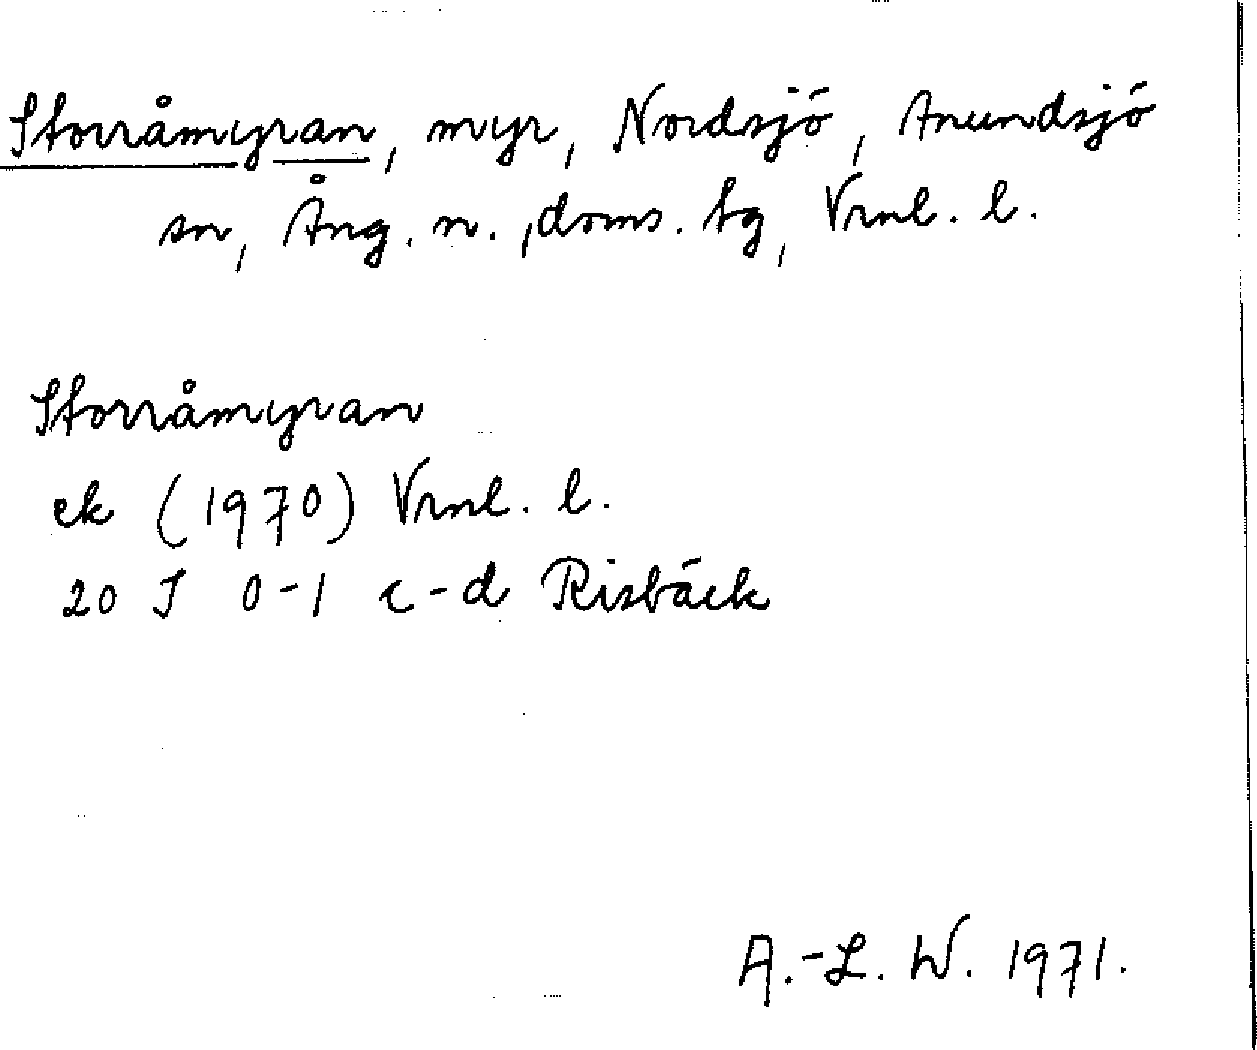 Storråmyran, myr, Nordsjö, Anundsjö
sn, Ång. n., doms. tg, Vrnl. l.
Storråmyran
ek (1970) Vrnl. l.
20 J 0-1 c-d Risbäck
A.-L. W. 1971.